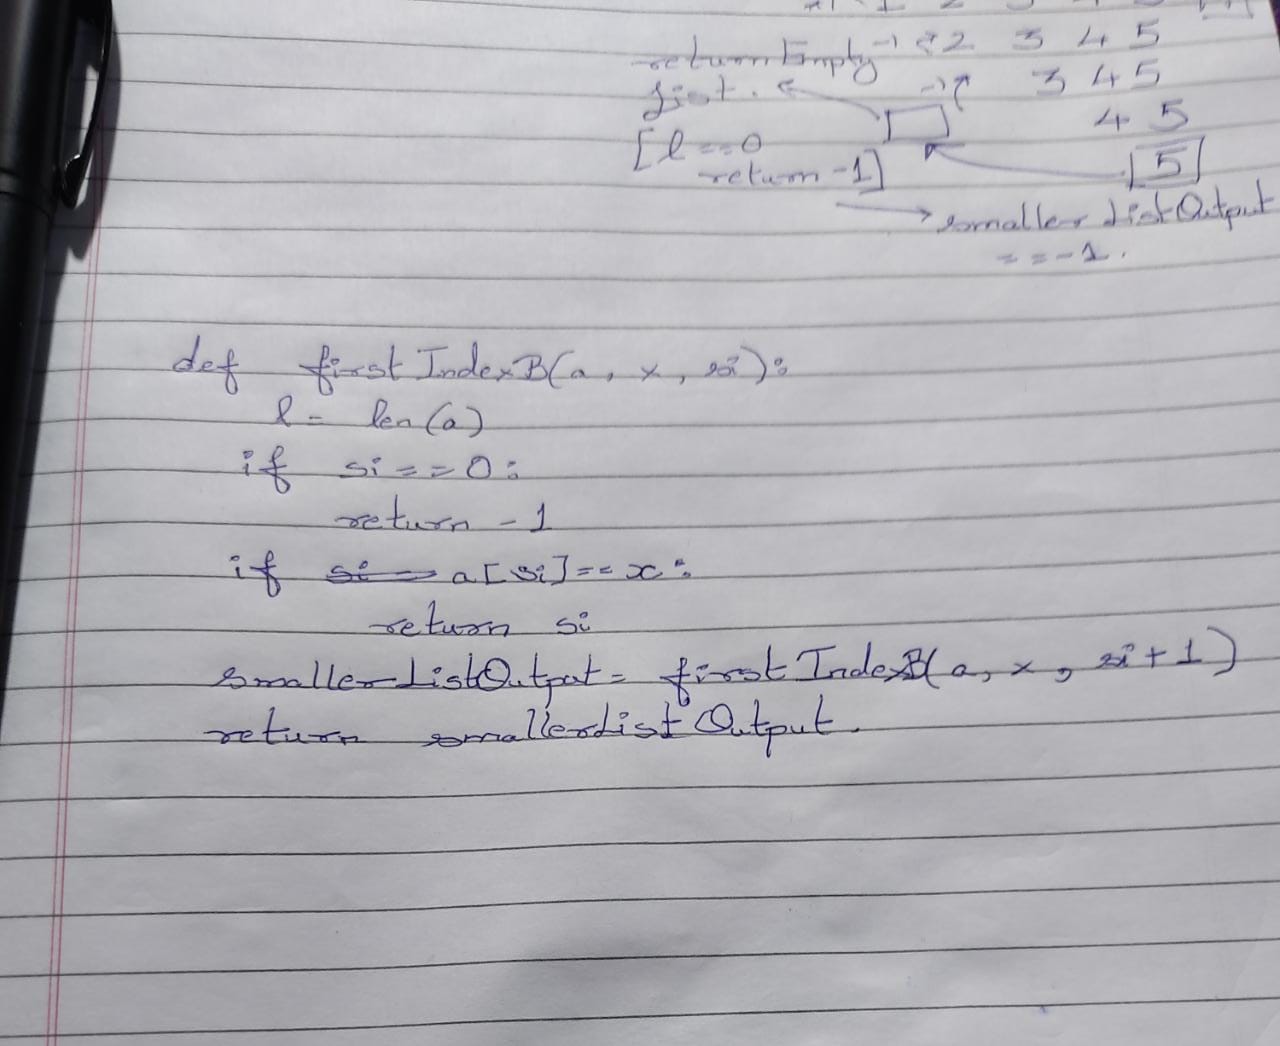 return Empty -1 2 3 4 5
list. -1 3 4 5
[l==0 4 5
return -1] 5
smaller List Output
== -1.
def firstIndexB(a, x, si):
l = len(a)
if si == 0:
return -1
if a[si]==x:
return si
smallerListOutput = firstIndexB(a, x, si+1)
return smallerListOutput.